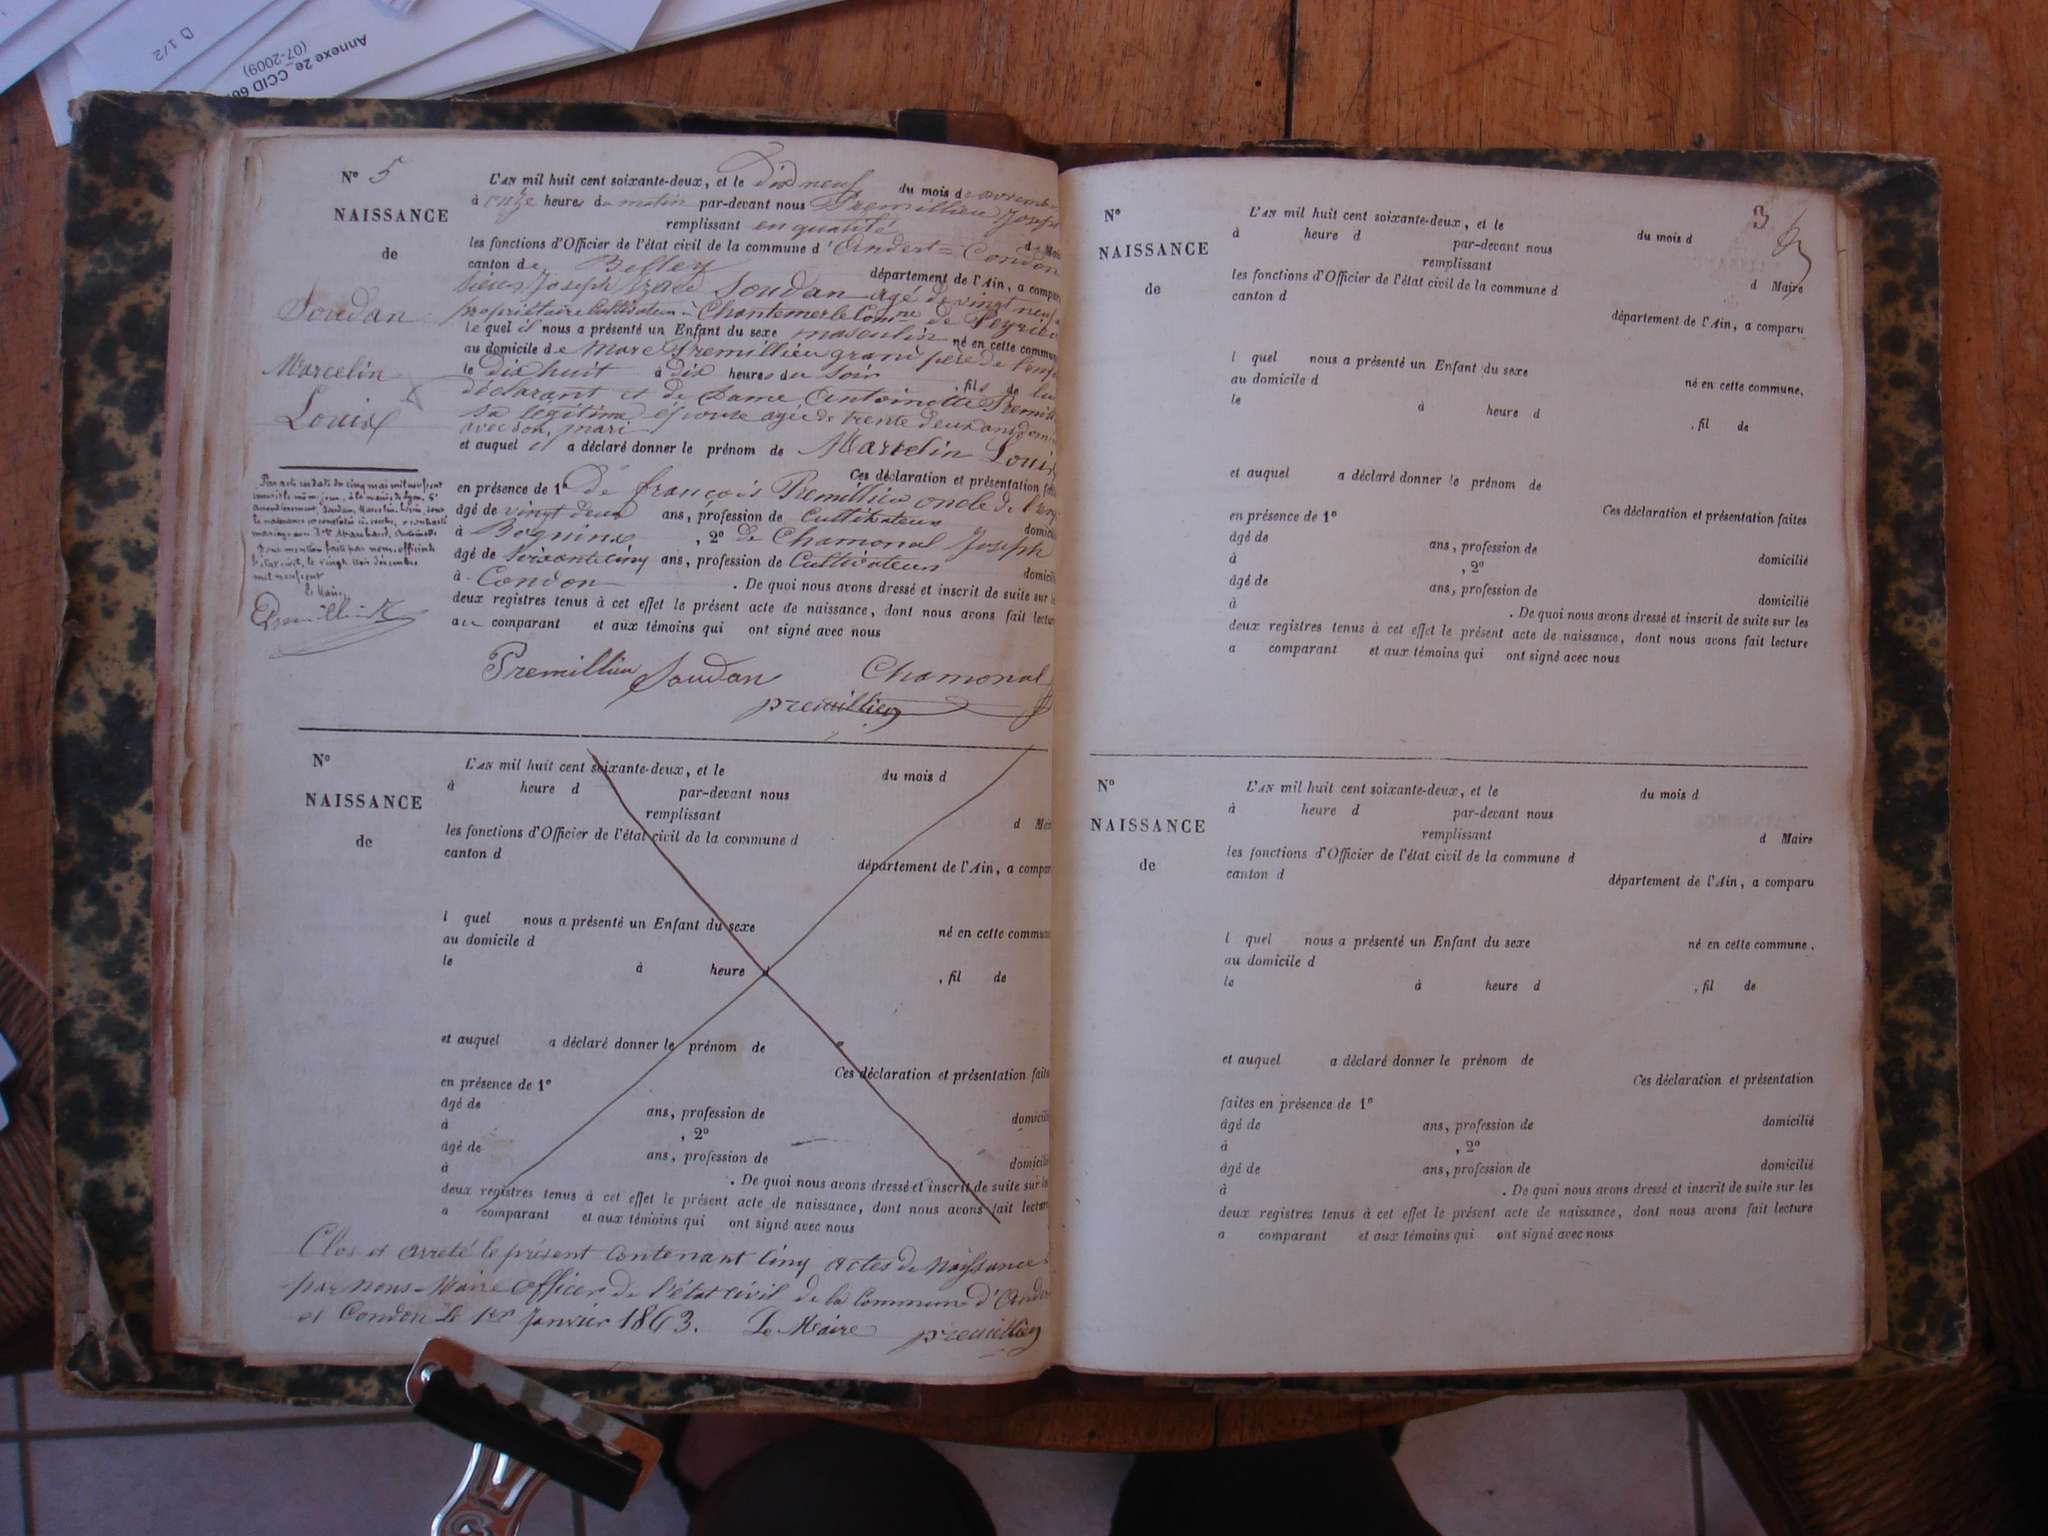 D 1/2
Annexe 2e_CCID
(07-2009)
N° 5
NAISSANCE
de
Soudan
Marcelin
Louis
L'AN mil huit cent soixante-deux, et le Dix neuf du mois de novembre
à onze heures du matin par-devant nous Premillieu Joseph
remplissant en qualité d Maire
les fonctions d'Officier de l'état civil de la commune d'Andert=Condon
canton de Belley département de l'Ain, a comparu
sieur Joseph Soudan agé de vingt neuf
propriétaire Cultivateur à Chantemerle Comne de Peyrieu
le quel il nous a présenté un Enfant du sexe masculin né en cette commune
au domicile de Marc Premillieu grand père de l'enfant
le dix huit à dix heures du soir , fils de lui
déclarant et de Dame Antoinette Premillieu
sa légitime épouse agée de trente deux ans
avec son mari
et auquel il a déclaré donner le prénom de Marcelin Louis
Ces déclaration et présentation
en présence de 1° de françois Premillieu oncle de
âgé de vingt deux ans, profession de Cultivateur domicilié
à , 2° de Chamonal Joseph
âgé de soixante cinq ans, profession de Cultivateur domicilié
à Condon . De quoi nous avons dressé et inscrit de suite sur
deux registres tenus à cet effet le présent acte de naissance, dont nous avons fait lecture
au comparant et aux témoins qui ont signé avec nous
Premillieu Soudan Chamonal
premillieu
Par acte en date du cinq mai mil neuf cent
Soudan, Marcelin Louis, dont
la naissance est constatée ci-contre, a contracté
mariage avec Dlle
Pour mention faite par nous, officier de
l'état civil, le vingt trois décembre
mil neuf cent
Le Maire,
Premillieu
N°
NAISSANCE
de
L'AN mil huit cent soixante-deux, et le du mois d
à heure d par-devant nous
remplissant d Maire
les fonctions d'Officier de l'état civil de la commune d
canton d
département de l'Ain, a comparu
l quel nous a présenté un Enfant du sexe né en cette commune
au domicile d
le à heure d , fil de
et auquel a déclaré donner le prénom de
Ces déclaration et présentation faites
en présence de 1°
âgé de ans, profession de domicilié
à , 2°
âgé de ans, profession de domicilié
à . De quoi nous avons dressé et inscrit de suite sur les
deux registres tenus à cet effet le présent acte de naissance, dont nous avons fait lecture
a comparant et aux témoins qui ont signé avec nous
Clos et arreté le présent Contenant Cinq Actes de Naissance
par nous Maire officier de l'état civil de la Commune d'Andert
et Condon le 1er Janvier 1863. Le Maire premillieu
3
N°
NAISSANCE
de
L'AN mil huit cent soixante-deux, et le du mois d
à heure d par-devant nous
remplissant d Maire
les fonctions d'Officier de l'état civil de la commune d
canton d
département de l'Ain, a comparu
l quel nous a présenté un Enfant du sexe né en cette commune.
au domicile d
le à heure d , fil de
et auquel a déclaré donner le prénom de
Ces déclaration et présentation faites
en présence de 1°
âgé de ans, profession de domicilié
à , 2°
âgé de ans, profession de domicilié
à . De quoi nous avons dressé et inscrit de suite sur les
deux registres tenus à cet effet le présent acte de naissance, dont nous avons fait lecture
a comparant et aux témoins qui ont signé avec nous
N°
NAISSANCE
de
L'AN mil huit cent soixante-deux, et le du mois d
à heure d par-devant nous
remplissant d Maire
les fonctions d'Officier de l'état civil de la commune d
canton d
département de l'Ain, a comparu
l quel nous a présenté un Enfant du sexe né en cette commune.
au domicile d
le à heure d , fil de
et auquel a déclaré donner le prénom de
Ces déclaration et présentation
faites en présence de 1°
âgé de ans, profession de domicilié
à , 2°
âgé de ans, profession de domicilié
à . De quoi nous avons dressé et inscrit de suite sur les
deux registres tenus à cet effet le présent acte de naissance, dont nous avons fait lecture
a comparant et aux témoins qui ont signé avec nous